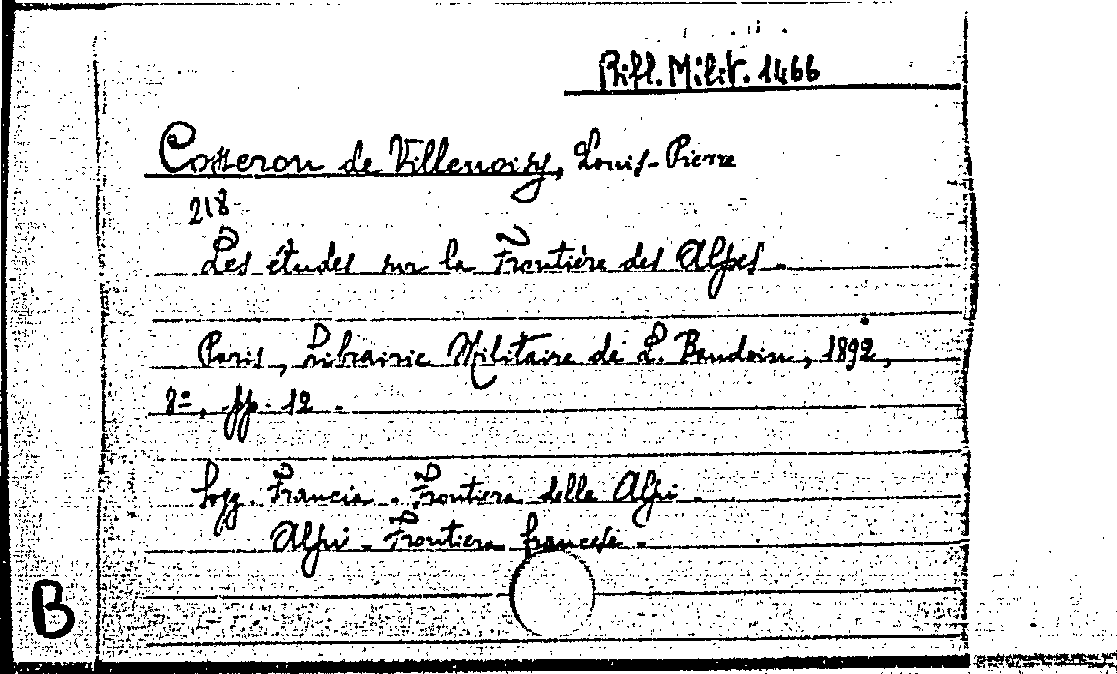 Riss. Milit. 1466
Cosseron de Villenoisy, Louis-Pierre
218
Les études sur la Frontière des Alpes.
Paris, Librairie Militaire de L. Baudoin, 1892,
8º, pp. 12.
Sogg. Francia - Frontiera delle Alpi -
Alpi - Frontiera francese -
B